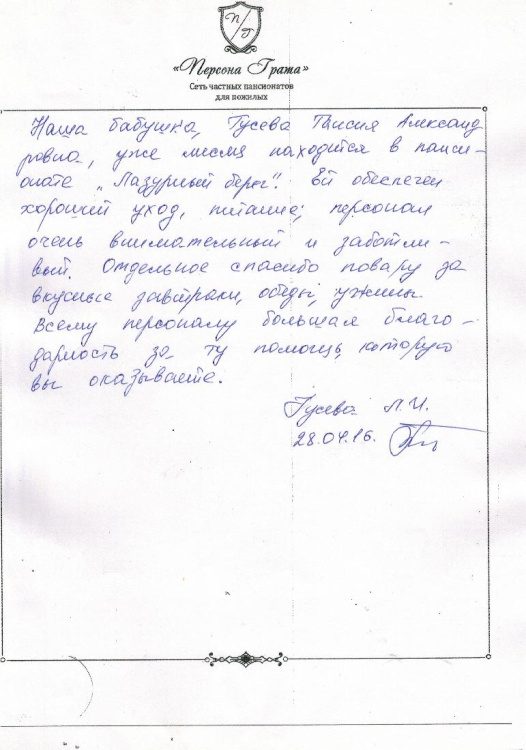 П/Г
«Персона Грата»
Сеть частных пансионатов
для пожилых
Наша бабушка, Гусева Таисия Александ
ровна, уже месяц находится в панси-
онате „Лазурный берег". Ей обеспечен
хороший уход, питание; персонал
очень внимательный и заботли-
вый. Отдельное спасибо повару за
вкусные завтраки, обеды, ужины.
Всему персоналу большая благо-
дарность за ту помощь, которую
вы оказываете.
Гусева Л.И.
28.04.16.